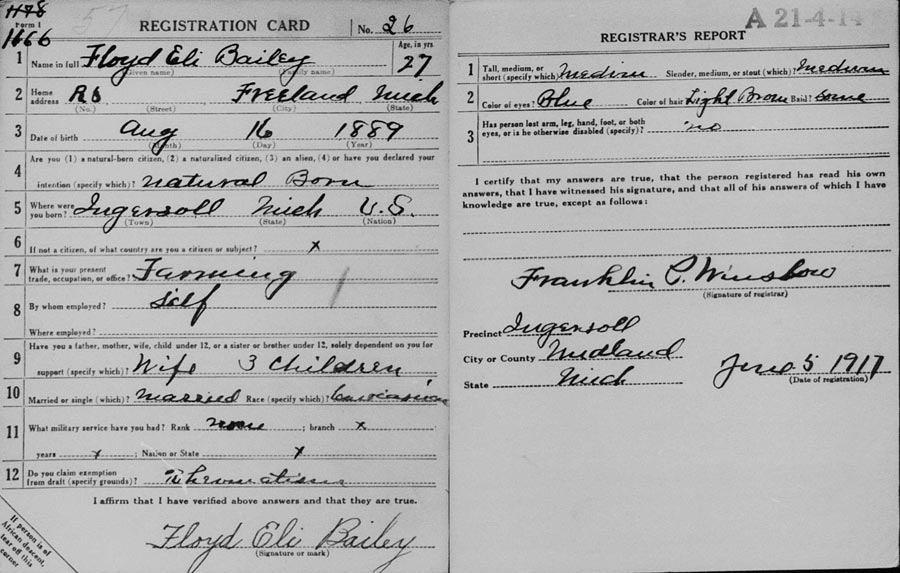 1178
57
Form 1
REGISTRATION CARD
No. 26
1666
1 Name in full Floyd Eli Bailey
(Given name) (Family name)
Age, in yrs. 27
2 Home address
(No.) (Street) (City) (State)
Freeland Mich
3 Date of birth Aug 16 1889
(Month) (Day) (Year)
4 Are you (1) a natural-born citizen, (2) a naturalized citizen, (3) an alien, (4) or have you declared your
intention (specify which)? Natural Born
5 Where were you born? Ingersoll Mich U.S.
(Town) (State) (Nation)
6 If not a citizen, of what country are you a citizen or subject? x
7 What is your present trade, occupation, or office? Farming
8 By whom employed? Self
Where employed?
9 Have you a father, mother, wife, child under 12, or a sister or brother under 12, solely dependent on you for
support (specify which)? Wife 3 Children
10 Married or single (which)? Married Race (specify which)? Caucasian
11 What military service have you had? Rank none ; branch x
years x ; Nation or State x
12 Do you claim exemption from draft (specify grounds)?
I affirm that I have verified above answers and that they are true.
Floyd Eli Bailey
(Signature or mark)
If person is of
African descent,
tear off this
corner
A 21-4-14
REGISTRAR'S REPORT
1 Tall, medium, or short (specify which)? Medium Slender, medium, or stout (which)? Medium
2 Color of eyes? Blue Color of hair? Light Brown Bald? Some
3 Has person lost arm, leg, hand, foot, or both
eyes, or is he otherwise disabled (specify)? no
I certify that my answers are true, that the person registered has read his own
answers, that I have witnessed his signature, and that all of his answers of which I have
knowledge are true, except as follows:
Franklin P. Winslow
(Signature of registrar)
Precinct Ingersoll
City or County Midland
State Mich
June 5 1917
(Date of registration)